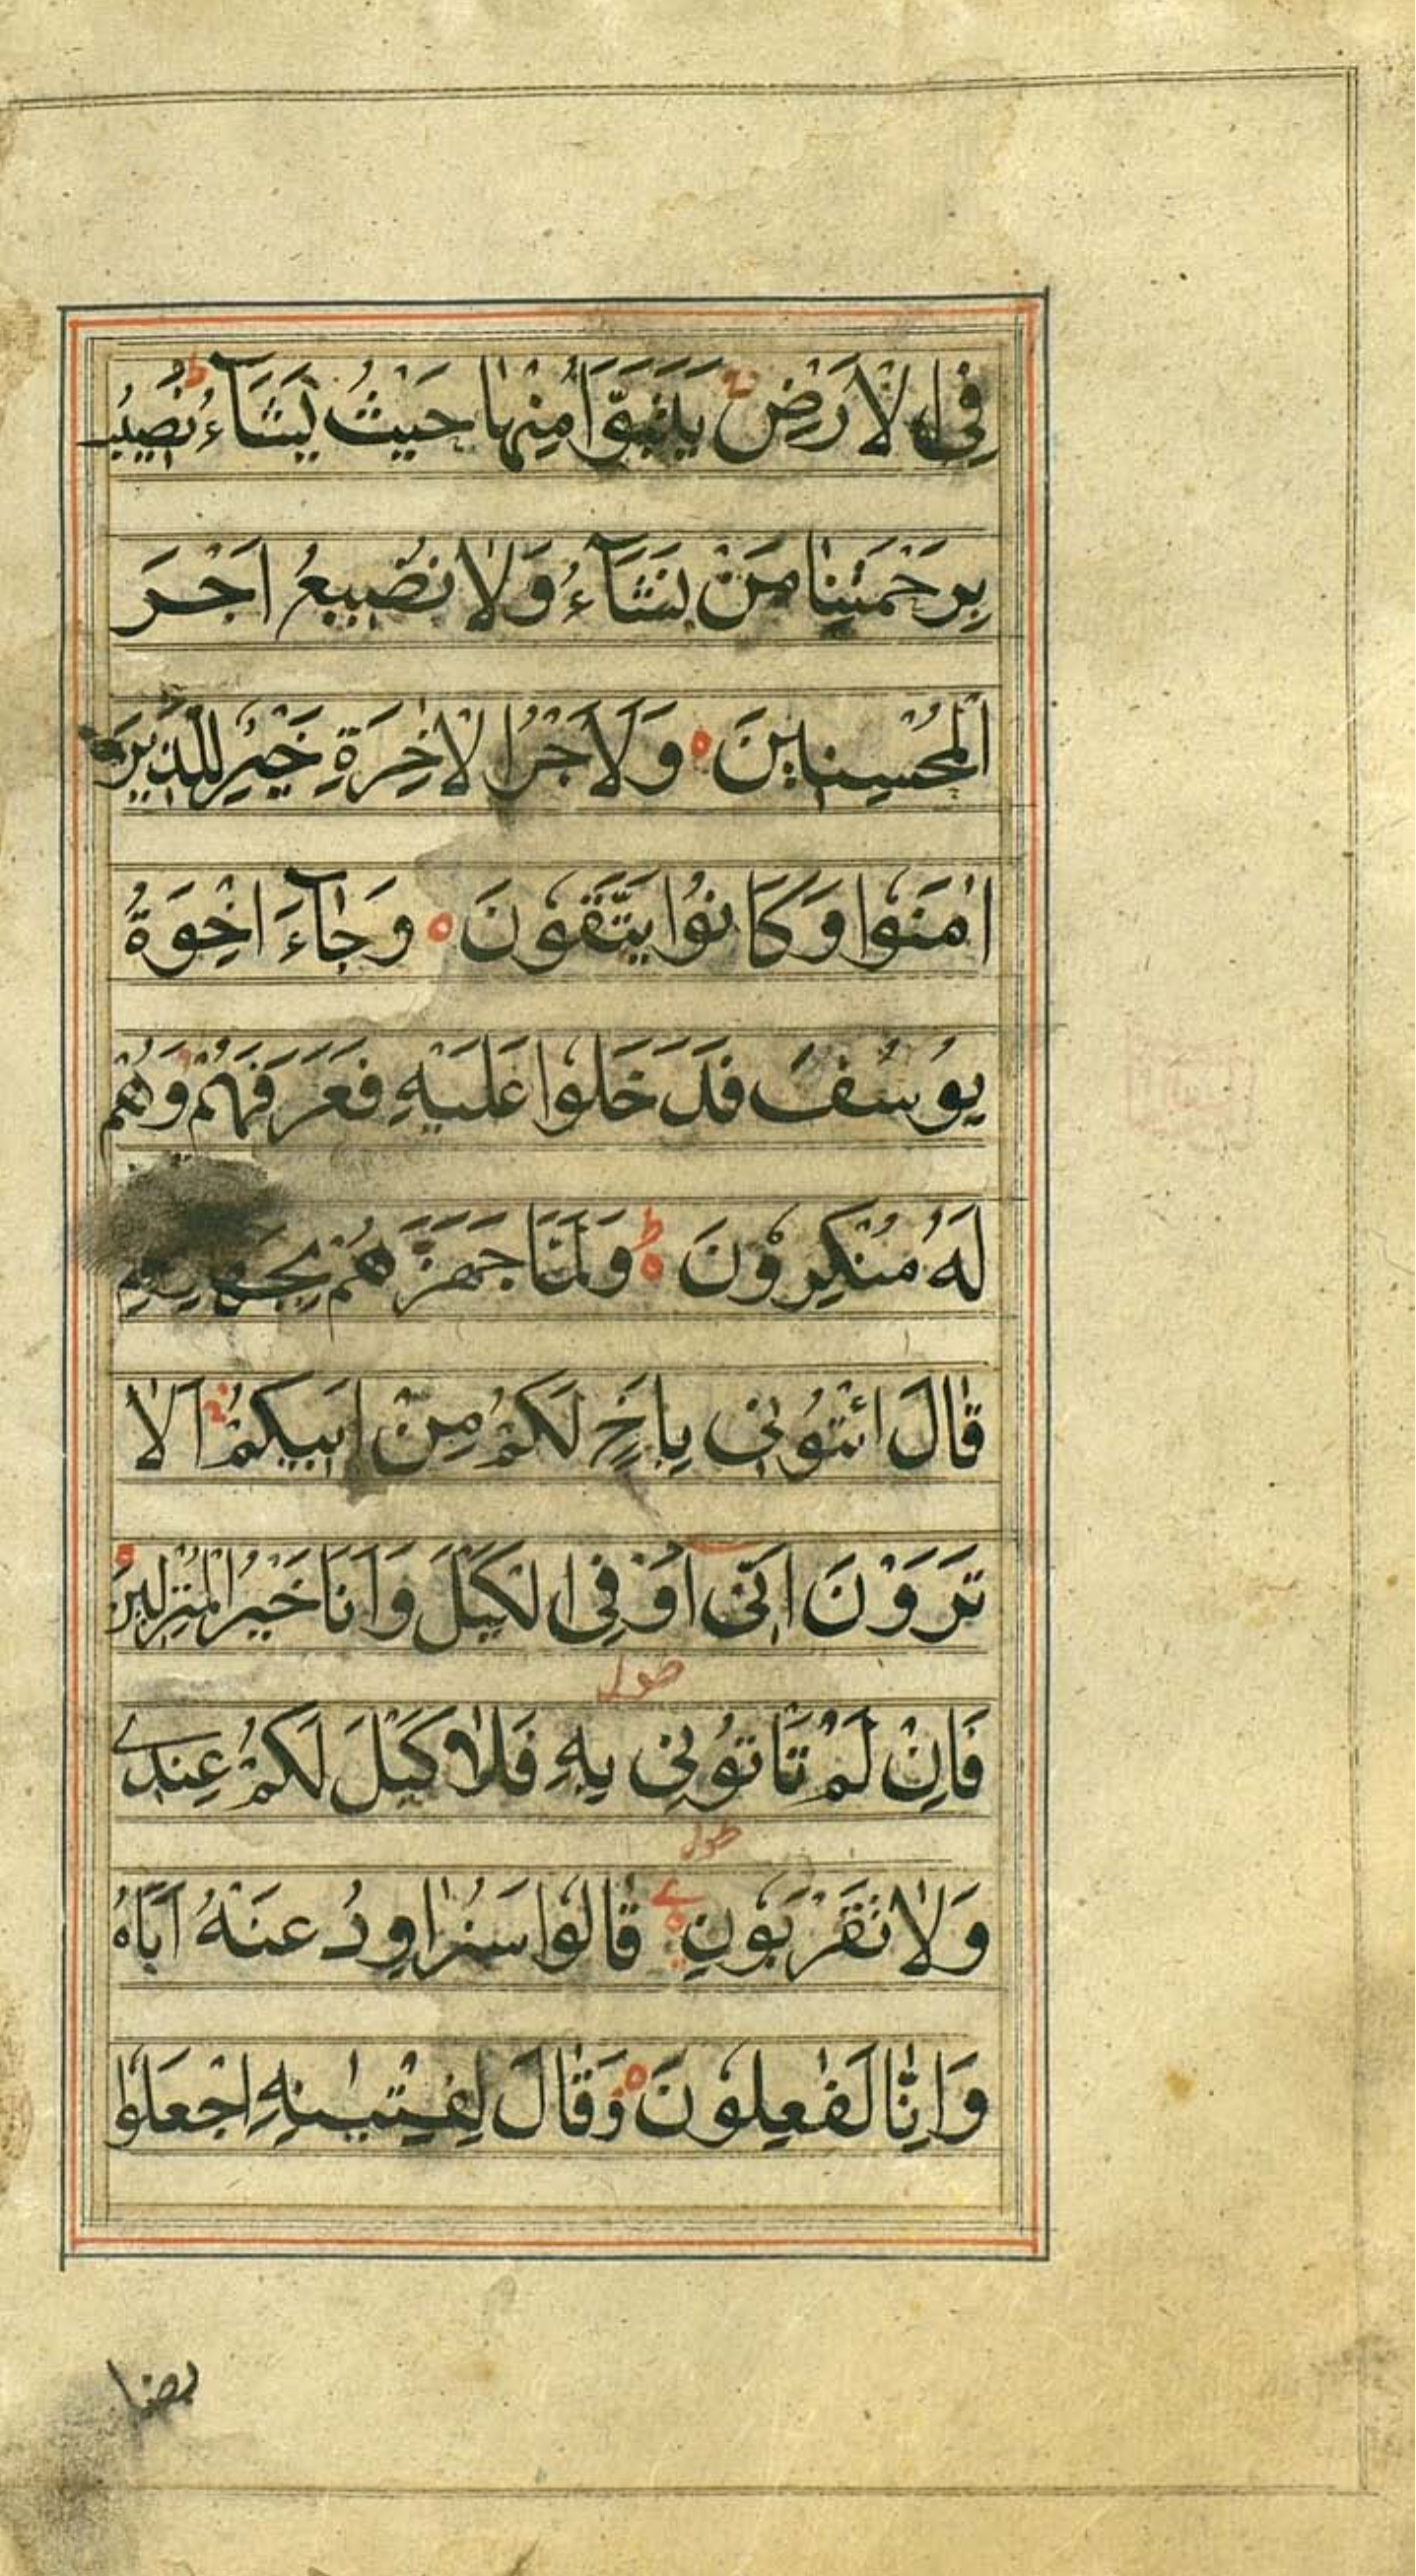 فِی الْاَرْضِ یَتَبَوَّاُ مِنْهَا حَیْثُ یَشَآءُ ط نُصِیْبُ
بِرَحْمَتِنَا مَنْ نَشَآءُ وَلَا نُضِیْعُ اَجْرَ
الْمُحْسِنِیْنَ ه وَلَاَجْرُ الْاٰخِرَةِ خَیْرٌ لِلَّذِیْنَ
اٰمَنُوْا وَکَانُوْا یَتَّقُوْنَ ه وَجَآءَ اِخْوَةُ
یُوْسُفَ فَدَخَلُوْا عَلَیْهِ فَعَرَفَهُمْ وَهُمْ
لَهُ مُنْکِرُوْنَ ه ط وَلَمَّا جَهَّزَهُمْ بِجَهَازِهِمْ
قَالَ ائْتُوْنِی بِاَخٍ لَکُمْ مِنْ اَبِیْکُمْ اَلَا
تَرَوْنَ اَنِّی اُوْفِی الْکَیْلَ وَاَنَا خَیْرُ الْمُنْزِلِیْنَ ه
فَاِنْ لَمْ تَاْتُوْنِی بِهِ فَلَا کَیْلَ لَکُمْ عِنْدِے
وَلَا تَقْرَبُوْنِ ه قَالُوْا سَنُرَاوِدُ عَنْهُ اَبَاهُ
وَاِنَّا لَفٰعِلُوْنَ ه وَقَالَ لِفِتْیٰنِهِ اجْعَلُوْا
بضا